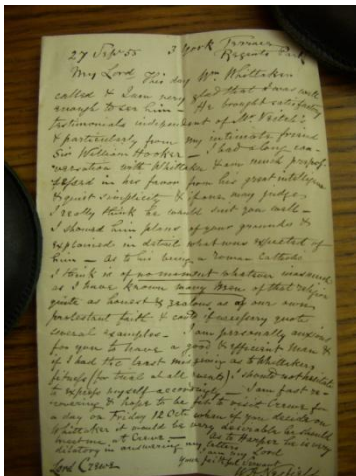 27 Sepr 55 3 York Terrace
Regents Park
My Lord This day Wm Whittaker
called & I am very glad that I was well
enough to see him — He brought satisfactory
testimonials independent of Mr Nesfield's
& particularly from my intimate friend
Sir William Hooker — I had a long con-
versation with Whittaker & am much prepos-
sessed in his favor from his great intelligence
& quiet simplicity & if one may judge,
I really think he would suit you well —
I showed him plans of your grounds &
explained in detail what was expected of
him — As to his being a Roman Catholic
I think is of no moment whatever inasmuch
as I have known many men of that religion
quite as honest & zealous as of our own
protestant faith & could if necessary quote
several examples — I am personally anxious
for you to have a good & efficient man &
if I had the least misgiving as to Whittaker's
fitness (for trial at all events) I should not hesitate
to express myself accordingly — I am fast re-
covering & hope to be able to visit Crewe for
a day on Friday 12 Octr when if you decide on
Whittaker it would be very desirable he should
meet me at Crewe — As to Harper he is very
dilatory in answering my letters
I am my Lord
Your faithful Servant
Lord Crewe